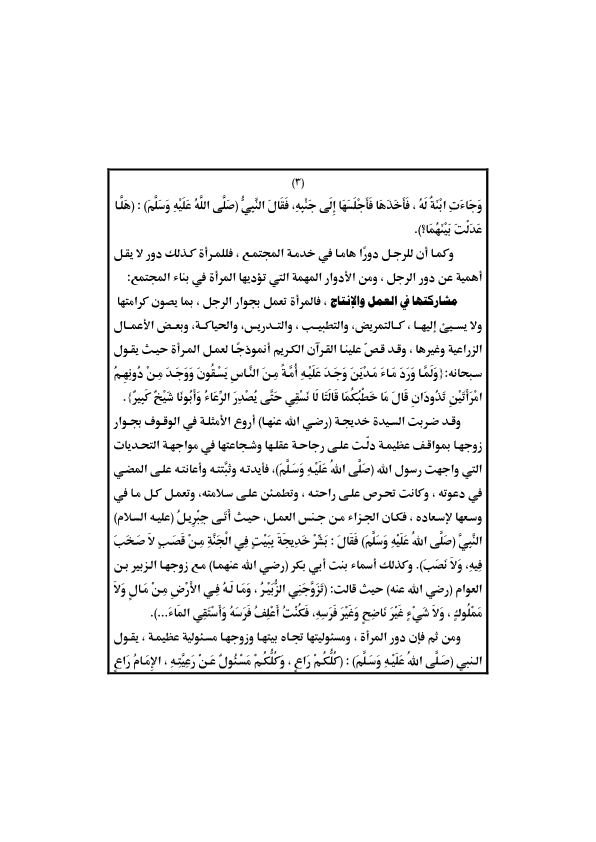 (٣)
وَجَاءَتِ ابْنَةٌ لَهُ ، فَأَخَذَهَا فَأَجْلَسَهَا إِلَى جَنْبِهِ، فَقَالَ النَّبِيُّ (صَلَّى اللَّهُ عَلَيْهِ وَسَلَّمَ) : (هَلَّا
عَدَلْتَ بَيْنَهُمَا؟).
وكما أن للرجل دورًا هاما في خدمة المجتمع ، فللمرأة كذلك دور لا يقل
أهمية عن دور الرجل ، ومن الأدوار المهمة التي تؤديها المرأة في بناء المجتمع:
مشاركتها في العمل والإنتاج ، فالمرأة تعمل بجوار الرجل ، بما يصون كرامتها
ولا يسيئ إليها ، كالتمريض، والتطبيب ، والتدريس، والحياكة، وبعض الأعمال
الزراعية وغيرها ، وقد قصّ علينا القرآن الكريم أنموذجًا لعمل المرأة حيث يقول
سبحانه: {وَلَمَّا وَرَدَ مَاءَ مَدْيَنَ وَجَدَ عَلَيْهِ أُمَّةً مِنَ النَّاسِ يَسْقُونَ وَوَجَدَ مِنْ دُونِهِمُ
امْرَأَتَيْنِ تَذُودَانِ قَالَ مَا خَطْبُكُمَا قَالَتَا لَا نَسْقِي حَتَّى يُصْدِرَ الرِّعَاءُ وَأَبُونَا شَيْخٌ كَبِيرٌ}.
وقد ضربت السيدة خديجة (رضي الله عنها) أروع الأمثلة في الوقوف بجوار
زوجها بمواقف عظيمة دلّت على رجاحة عقلها وشجاعتها في مواجهة التحديات
التي واجهت رسول الله (صَلَّى اللهُ عَلَيْهِ وَسَلَّمَ)، فأيدته وثبَّتته وأعانته على المضي
في دعوته ، وكانت تحرص على راحته ، وتطمئن على سلامته، وتعمل كل ما في
وسعها لإسعاده ، فكان الجزاء من جنس العمل، حيث أَتَى جِبْرِيلُ (عليه السلام)
النَّبِيَّ (صَلَّى اللهُ عَلَيْهِ وَسَلَّمَ) فَقَالَ : بَشِّرْ خَدِيجَةَ بِبَيْتٍ فِي الْجَنَّةِ مِنْ قَصَبٍ لاَ صَخَبَ
فِيهِ، وَلاَ نَصَبَ). وكذلك أسماء بنت أبي بكر (رضي الله عنهما) مع زوجها الزبير بن
العوام (رضي الله عنه) حيث قالت: (تَزَوَّجَنِي الزُّبَيْرُ ، وَمَا لَهُ فِي الأَرْضِ مِنْ مَالٍ وَلاَ
مَمْلُوكٍ ، وَلاَ شَيْءٍ غَيْرَ نَاضِحٍ وَغَيْرَ فَرَسِهِ، فَكُنْتُ أَعْلِفُ فَرَسَهُ وَأَسْتَقِي المَاءَ...).
ومن ثم فإن دور المرأة ، ومسئوليتها تجاه بيتها وزوجها مسئولية عظيمة ، يقول
النبي (صَلَّى اللهُ عَلَيْهِ وَسَلَّمَ) : (كُلُّكُمْ رَاعٍ ، وَكُلُّكُمْ مَسْئُولٌ عَنْ رَعِيَّتِهِ ، الإِمَامُ رَاعٍ